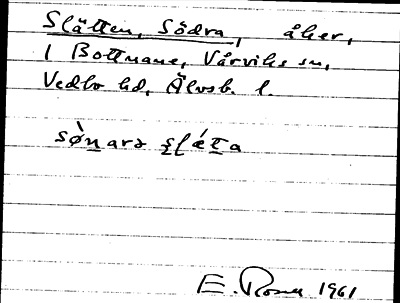 Slätten, Södra, åker,
1 Bottnane, Vårviks sn,
Vedbo hd, Älvsb. l.
sø̀nara şléta
E. Rosell 1961